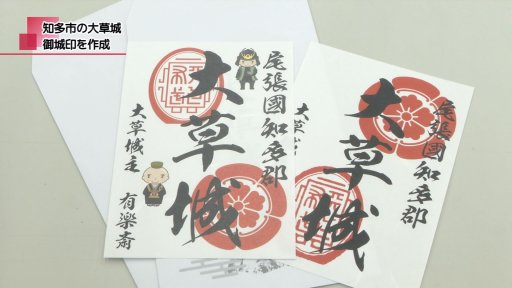 知多市の大草城
御城印を作成
尾張國知多郡
大草城
大草城主 有楽斎
尾張國知多郡
大草城